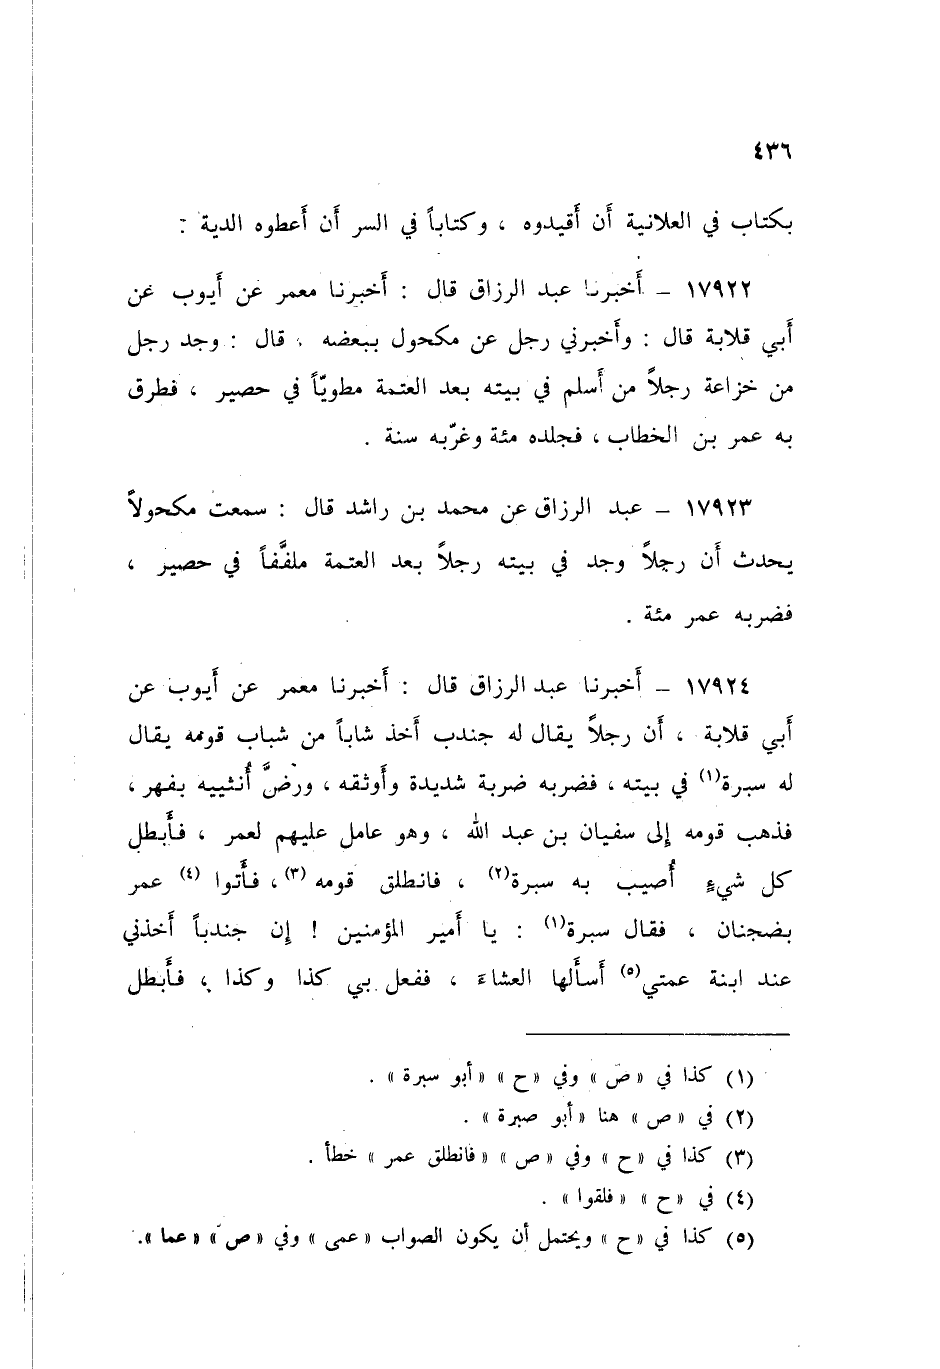 ٤٣٦
بكتاب في العلانية أَن أَقيدوه ، وكتاباً في السر أَن أَعطوه الدية :
١٧٩٢٢ – أَخبرنا عبد الرزاق قال : أَخبرنا معمر عن أَيوب عن
أَبي قلابة قال : وأَخبرني رجل عن مكحول ببعضه ، قال : وجد رجل
من خزاعة رجلاً من أَسلم في بيته بعد العتمة مطويّاً في حصير ، فطرق
به عمر بن الخطاب ، فجلده مئة وغرّبه سنة .
١٧٩٢٣ – عبد الرزاق عن محمد بن راشد قال : سمعت مكحولاً
يحدث أَن رجلاً وجد في بيته رجلاً بعد العتمة ملفَّفاً في حصير ،
فضربه عمر مئة .
١٧٩٢٤ – أَخبرنا عبد الرزاق قال : أَخبرنا معمر عن أَيوب عن
أَبي قلابة ، أَن رجلاً يقال له جندب أَخذ شاباً من شباب قومه يقال
له سبرة(١) في بيته ، فضربه ضربة شديدة وأَوثقه ، ورضَّ أُنثييه بفهر ،
فذهب قومه إِلى سفيان بن عبد الله ، وهو عامل عليهم لعمر ، فأَبطل
كل شيءٍ أُصيب به سبرة(٢) ، فانطلق قومه(٣)، فأَتوا(٤) عمر
بضجنان ، فقال سبرة(١) : يا أَمير المؤمنين ! إِن جندباً أَخذني
عند ابنة عمتي(٥) أَسأَلها العشاءَ ، ففعل بي كذا وكذا ، فأَبطل
(١) كذا في « ص » وفي « ح » « أبو سبرة » .
(٢) في « ص » هنا « أبو صبرة » .
(٣) كذا في « ح » وفي « ص » « فانطلق عمر » خطأ .
(٤) في « ح » « فلقوا » .
(٥) كذا في « ح » ويحتمل أن يكون الصواب « عمى » وفي « ص » « عما ».